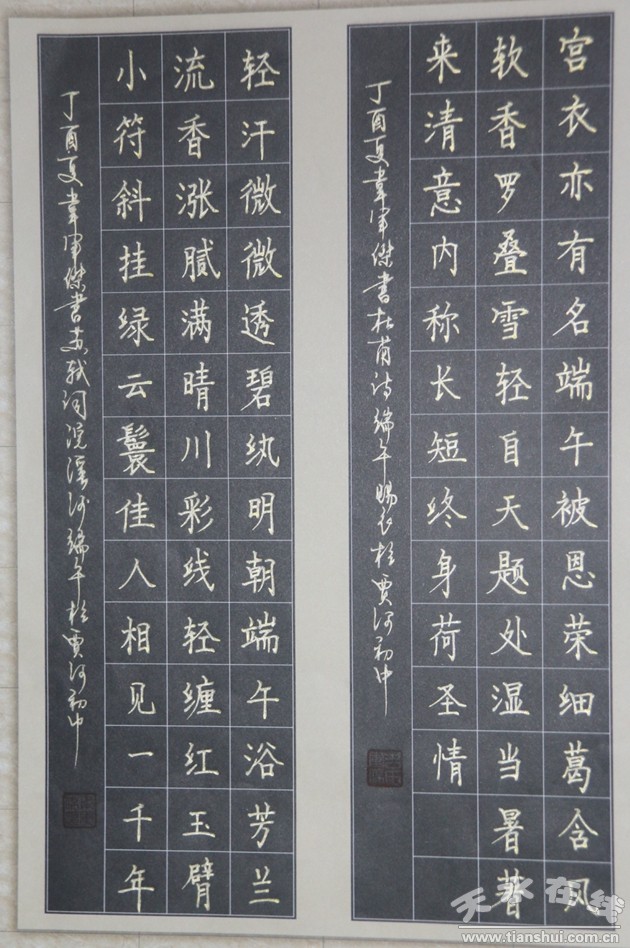 宫衣亦有名端午被恩荣细葛含风
软香罗叠雪轻自天题处湿当暑著
来清意内称长短终身荷圣情
丁酉夏韋军傑書杜甫诗端午赐衣於贾河初中
轻汗微微透碧纨明朝端午浴芳兰
流香涨腻满晴川彩线轻缠红玉臂
小符斜挂绿云鬟佳人相见一千年
丁酉夏韋军傑書苏轼词浣溪沙端午於贾河初中
天水在线
www.tianshui.com.cn